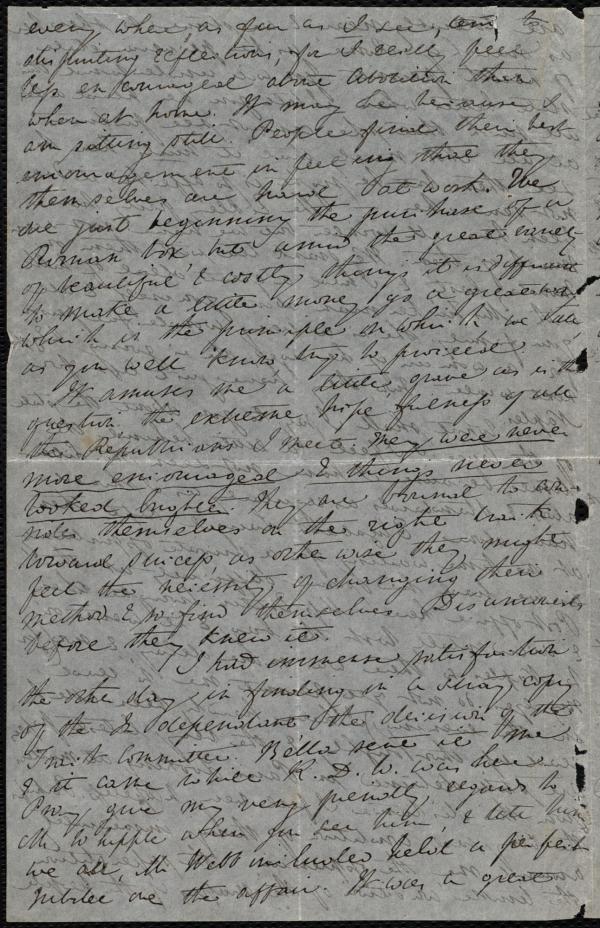 every where, as far as I see, tend to
dispiriting reflections, for I really feel
less encouraged about Abolition than
when at home. It may be because I
am sitting still. People find their best
encouragement in feeling that they
themselves are hard at work. We
are just beginning the purchase of a
Roman box but amid the great variety
of beautiful & costly things it is difficult
to make a little money go a great way
which is the principle on which we all,
as you well know try to proceed.
It amuses me a little grave as is the
question the extreme hopefulness of all
the Republicans I meet. They were never
more encouraged & things never
looked brighter. They are bound to con-
sider themselves on the right track
toward success, as otherwise they might
feel the necessity of changing their
method & so find themselves Disunionists
before they knew it.
I had immense satisfaction
the other day in finding in a stray copy
of the Independent the decision of the
Tract Committee. Bella sent it me
& it came while R. D. W. was here.
Pray give my very friendly regards to
Mr Whipple when you see him, & tell him
we all, Mr Webb included held a perfect
Jubilee over the affair. It was a great